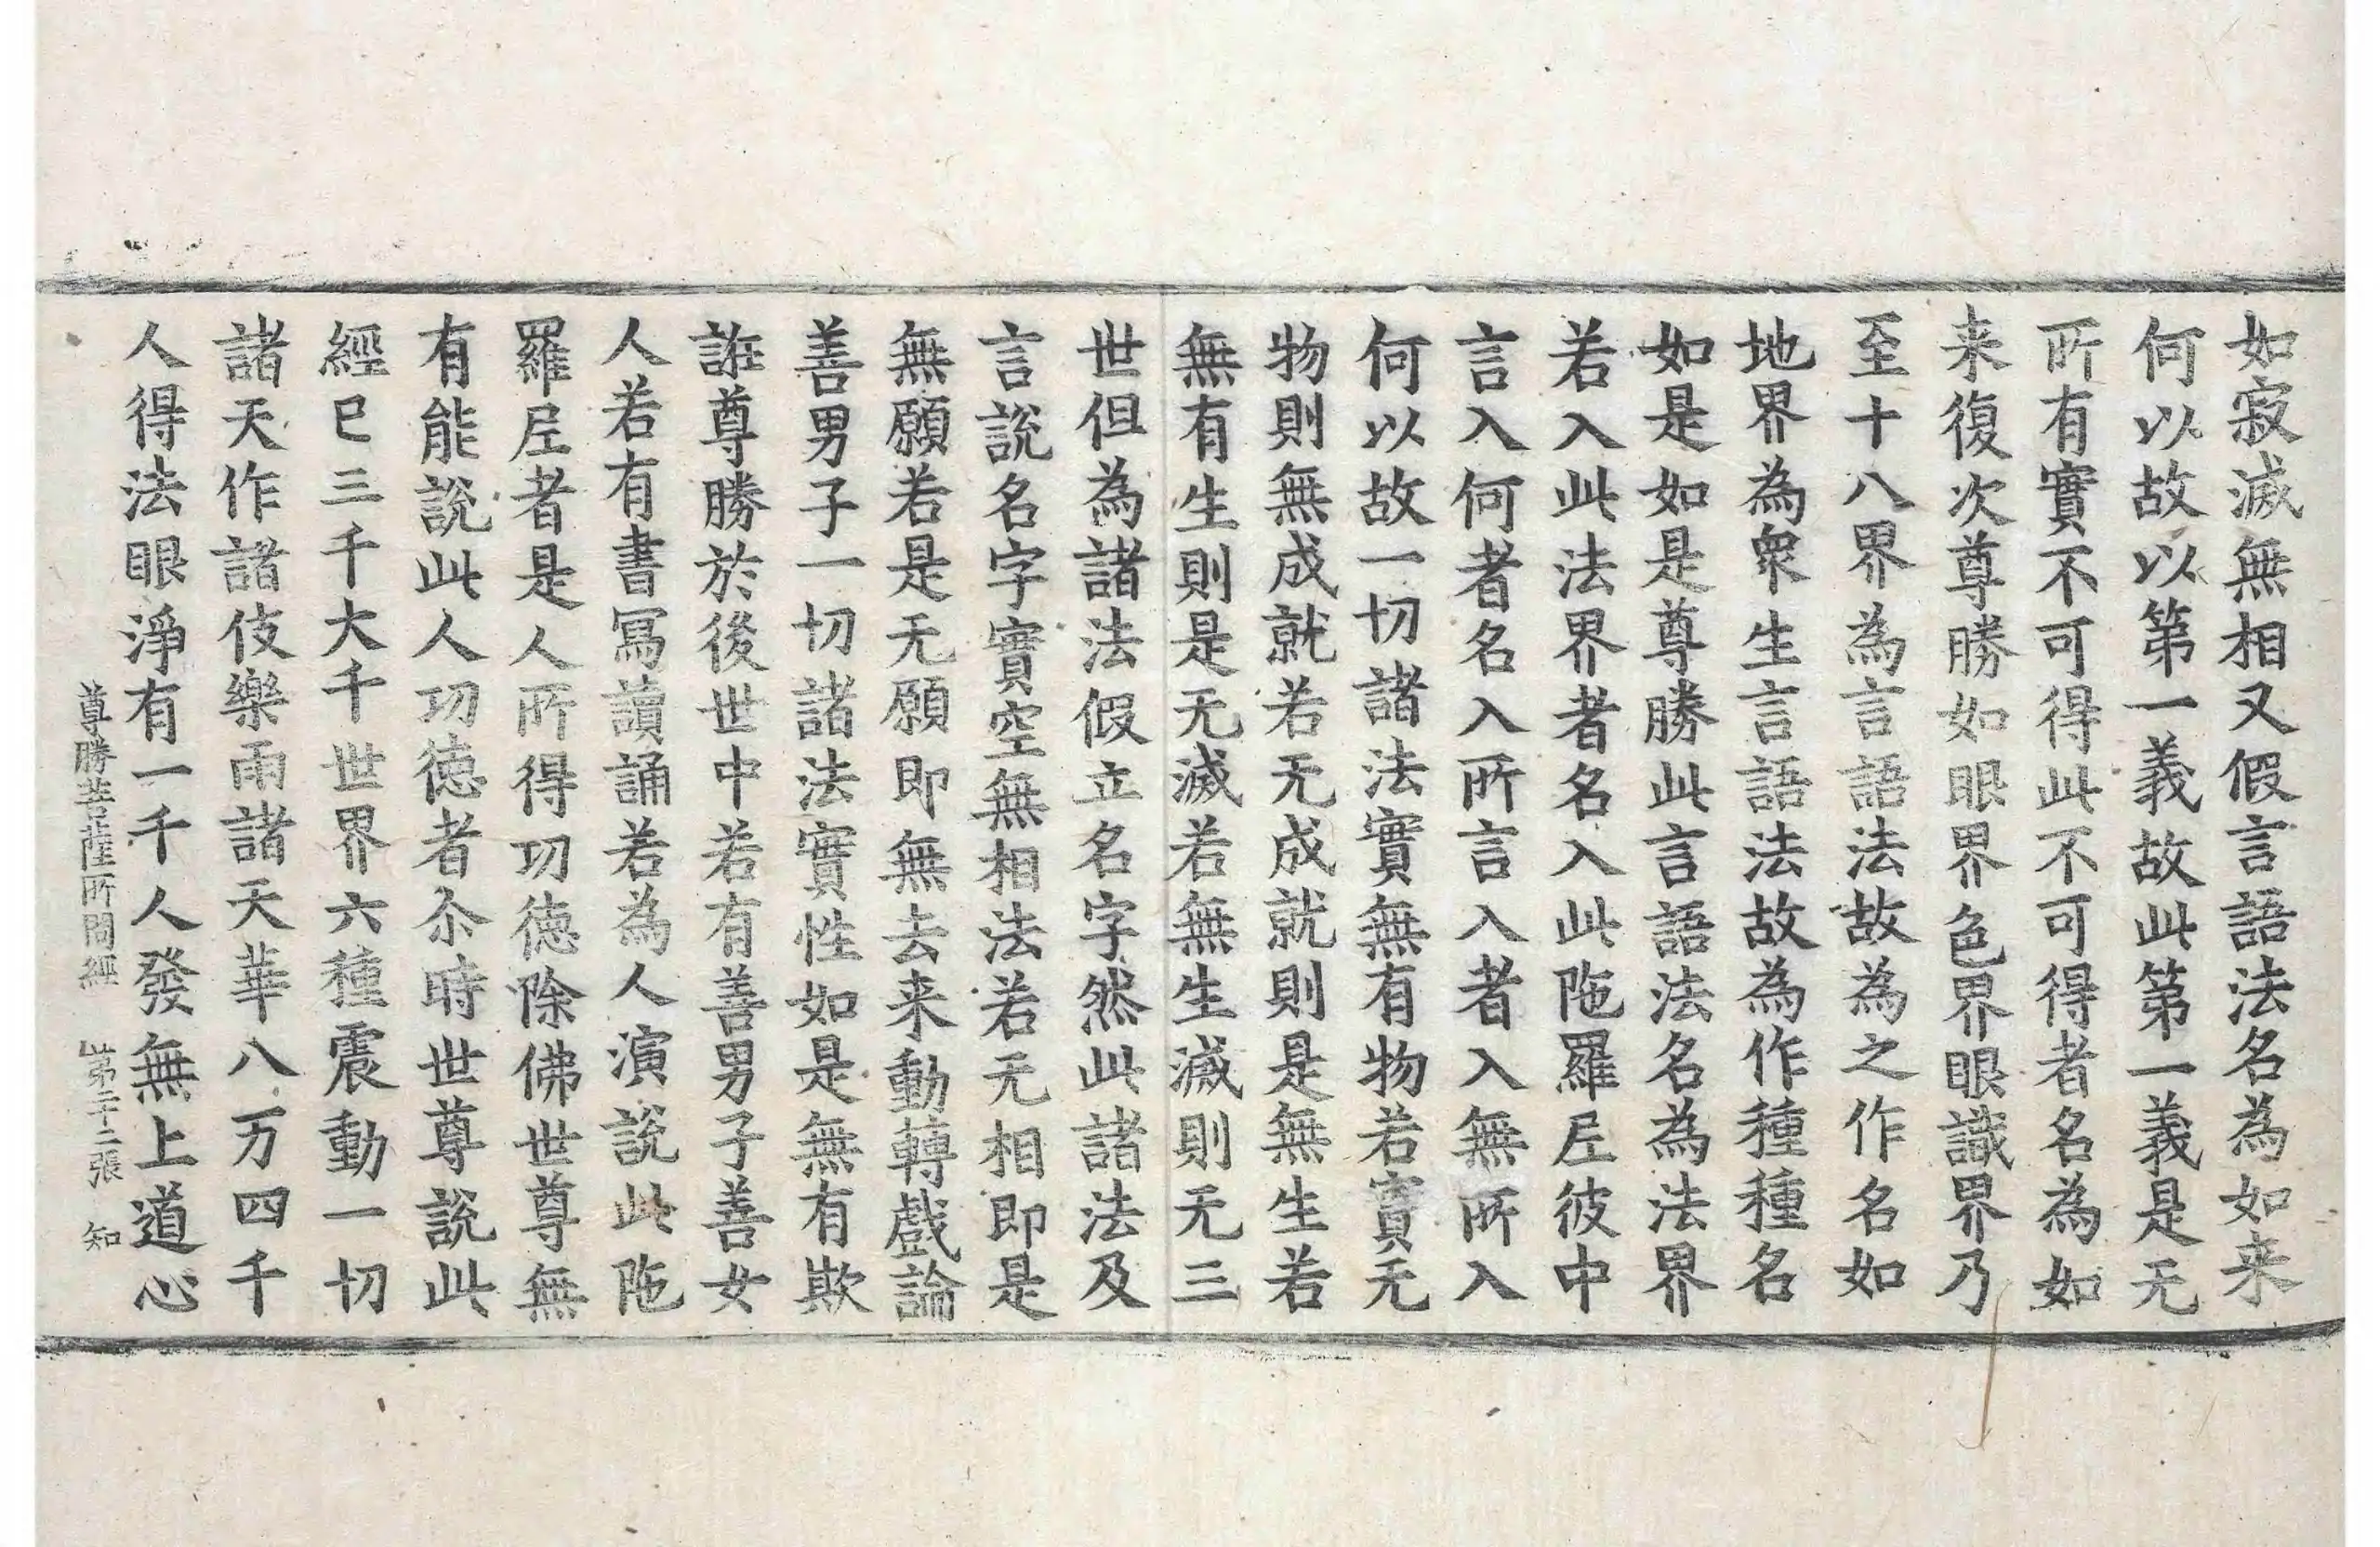 如寂滅無相又假言語法名為如来
何以故以第一義故此第一義是无
所有實不可得此不可得者名為如
来復次尊勝如眼界色界眼識界乃
至十八界為言語法故為之作名如
地界為衆生言語法故為作種種名
如是如是尊勝此言語法名為法界
若入此法界者名入此陁羅尼彼中
言入何者名入所言入者入無所入
何以故一切諸法實無有物若實无
物則無成就若无成就則是無生若
無有生則是无滅若無生滅則无三
世但為諸法假立名字然此諸法及
言說名字實空無相法若无相即是
無願若是无願即無去来動轉戲論
善男子一切諸法實性如是無有欺
誑尊勝於後世中若有善男子善女
人若有書寫讀誦若為人演說此陁
羅尼者是人所得功徳除佛世尊無
有能說此人功徳者尒時世尊說此
經已三千大千世界六種震動一切
諸天作諸伎樂雨諸天華八万四千
人得法眼淨有一千人發無上道心
尊勝菩薩所問經 第二十二張 知